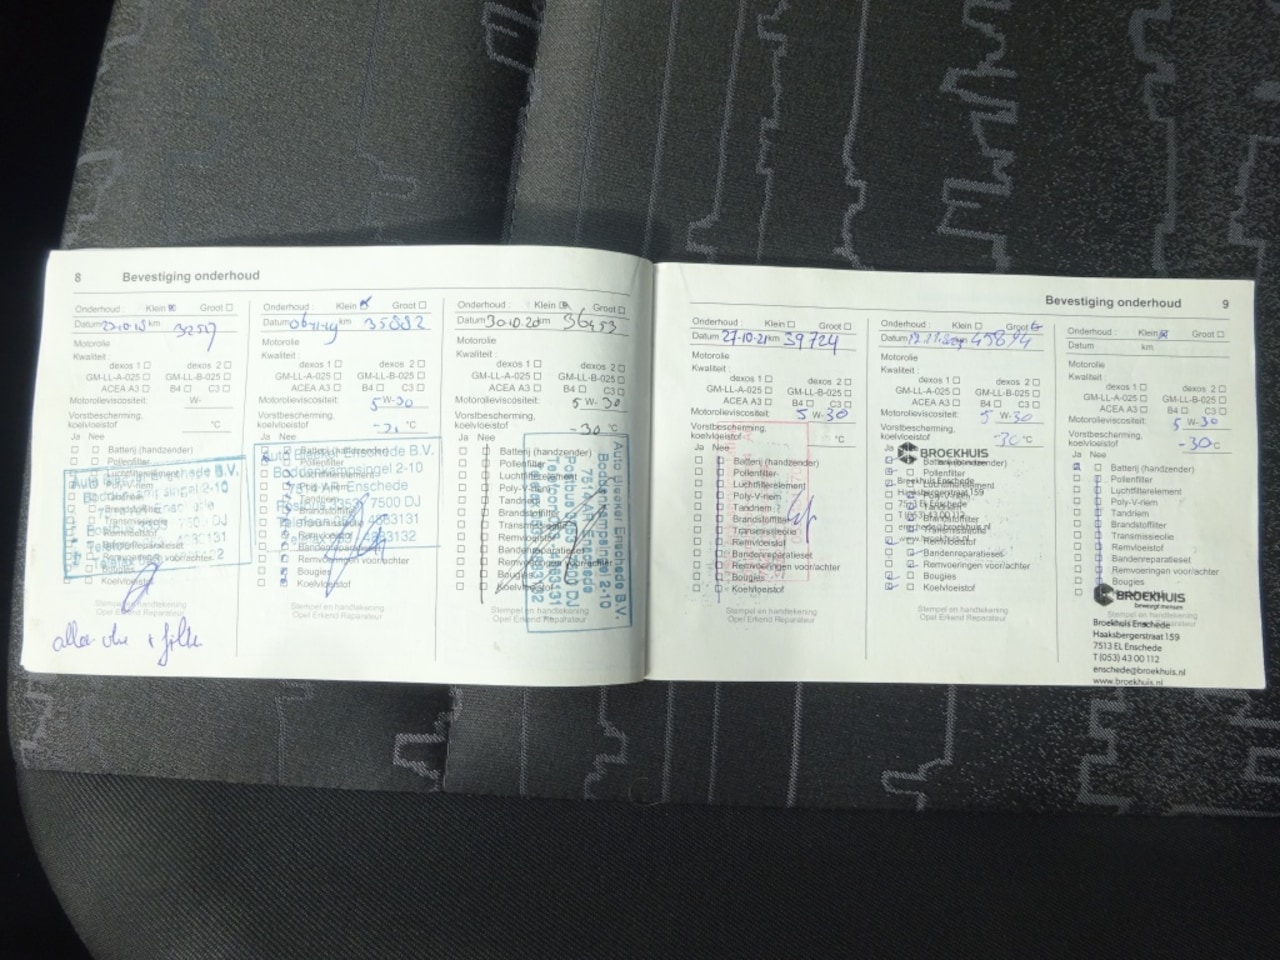 8 Bevestiging onderhoud
Onderhoud : Klein Groot
Datum 23-10-18 km 32517
Motorolie
Kwaliteit :
dexos 1 dexos 2
GM-LL-A-025 GM-LL-B-025
ACEA A3 B4 C3
Motorolieviscositeit: W-
Vorstbescherming,
koelvloeistof °C
Ja Nee
Batterij (handzender)
Pollenfilter
Koelvloeistof
Stempel en handtekening
Opel Erkend Reparateur
Onderhoud : Klein Groot
Datum 06-11-19 km 35882
Motorolie
Kwaliteit :
dexos 1 dexos 2
GM-LL-A-025 GM-LL-B-025
ACEA A3 B4 C3
Motorolieviscositeit: 5 W-30
Vorstbescherming,
koelvloeistof °C
Ja Nee
Batterij (handzender)
Pollenfilter
Auto Bleeker Enschede B.V.
Boddenkampsingel 2-10
7514 AR Enschede
Remvoeringen voor/achter
Bougies
Koelvloeistof
Stempel en handtekening
Opel Erkend Reparateur
Onderhoud : Klein Groot
Datum 30-10-20 km 36453
Motorolie
Kwaliteit :
dexos 1 dexos 2
GM-LL-A-025 GM-LL-B-025
ACEA A3 B4 C3
Motorolieviscositeit: 5 W-30
Vorstbescherming,
koelvloeistof -30 °C
Ja Nee
Batterij (handzender)
Pollenfilter
Luchtfilterelement
Poly-V-riem
Tandriem
Brandstoffilter
Transmissieolie
Remvloeistof
Bandenreparatieset
Remvoeringen voor/achter
Bougies
Koelvloeistof
Auto Bleeker Enschede B.V.
Boddenkampsingel 2-10
Stempel en handtekening
Opel Erkend Reparateur
Bevestiging onderhoud 9
Onderhoud : Klein Groot
Datum 27-10-21 km 39724
Motorolie
Kwaliteit :
dexos 1 dexos 2
GM-LL-A-025 GM-LL-B-025
ACEA A3 B4 C3
Motorolieviscositeit: 5 W-30
Vorstbescherming,
koelvloeistof °C
Ja Nee
Batterij (handzender)
Pollenfilter
Luchtfilterelement
Poly-V-riem
Tandriem
Brandstoffilter
Transmissieolie
Remvloeistof
Bandenreparatieset
Remvoeringen voor/achter
Bougies
Koelvloeistof
Stempel en handtekening
Opel Erkend Reparateur
Onderhoud : Klein Groot
Datum km
Motorolie
Kwaliteit :
dexos 1 dexos 2
GM-LL-A-025 GM-LL-B-025
ACEA A3 B4 C3
Motorolieviscositeit: 5 W-30
Vorstbescherming,
koelvloeistof -30 °C
Ja Nee
BROEKHUIS
Batterij (handzender)
Pollenfilter
Broekhuis Enschede
Haaksbergerstraat 159
enschede@broekhuis.nl
www.broekhuis.nl
Bandenreparatieset
Remvoeringen voor/achter
Bougies
Koelvloeistof
Stempel en handtekening
Opel Erkend Reparateur
Onderhoud : Klein Groot
Datum km
Motorolie
Kwaliteit :
dexos 1 dexos 2
GM-LL-A-025 GM-LL-B-025
ACEA A3 B4 C3
Motorolieviscositeit: 5 W-30
Vorstbescherming,
koelvloeistof -30 °C
Ja Nee
Batterij (handzender)
Pollenfilter
Luchtfilterelement
Poly-V-riem
Tandriem
Brandstoffilter
Transmissieolie
Remvloeistof
Bandenreparatieset
Remvoeringen voor/achter
Bougies
BROEKHUIS
beweegt mensen
Broekhuis Enschede
Haaksbergerstraat 159
7513 EL Enschede
T (053) 43 00 112
enschede@broekhuis.nl
www.broekhuis.nl